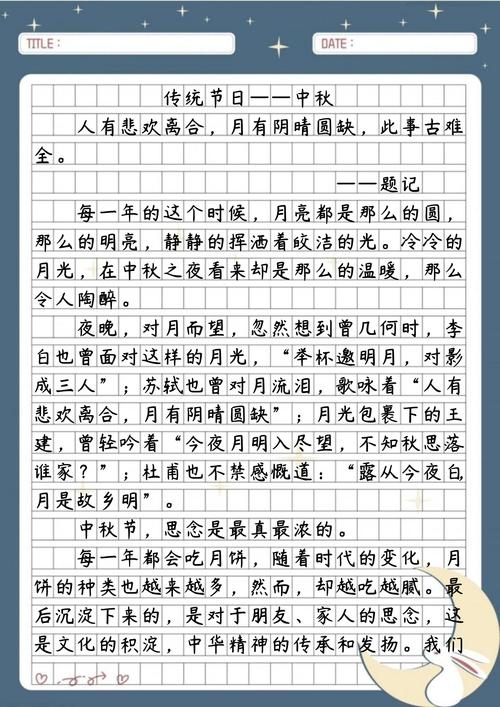 TITLE:
DATE:
传统节日——中秋
人有悲欢离合，月有阴晴圆缺，此事古难
全。
——题记
每一年的这个时候，月亮都是那么的圆，
那么的明亮，静静的挥洒着皎洁的光。冷冷的
月光，在中秋之夜看来却是那么的温暖，那么
令人陶醉。
夜晚，对月而望，忽然想到曾几何时，李
白也曾面对这样的月光，“举杯邀明月，对影
成三人”；苏轼也曾对月流泪，歌咏着“人有
悲欢离合，月有阴晴圆缺”；月光包裹下的王
建，曾轻吟着“今夜月明入尽望，不知秋思落
谁家？”；杜甫也不禁感慨道：“露从今夜白，
月是故乡明”。
中秋节，思念是最真最浓的。
每一年都会吃月饼，随着时代的变化，月
饼的种类也越来越多，然而，却越吃越腻。最
后沉淀下来的，是对于朋友、家人的思念，这
是文化的积淀，中华精神的传承和发扬。我们